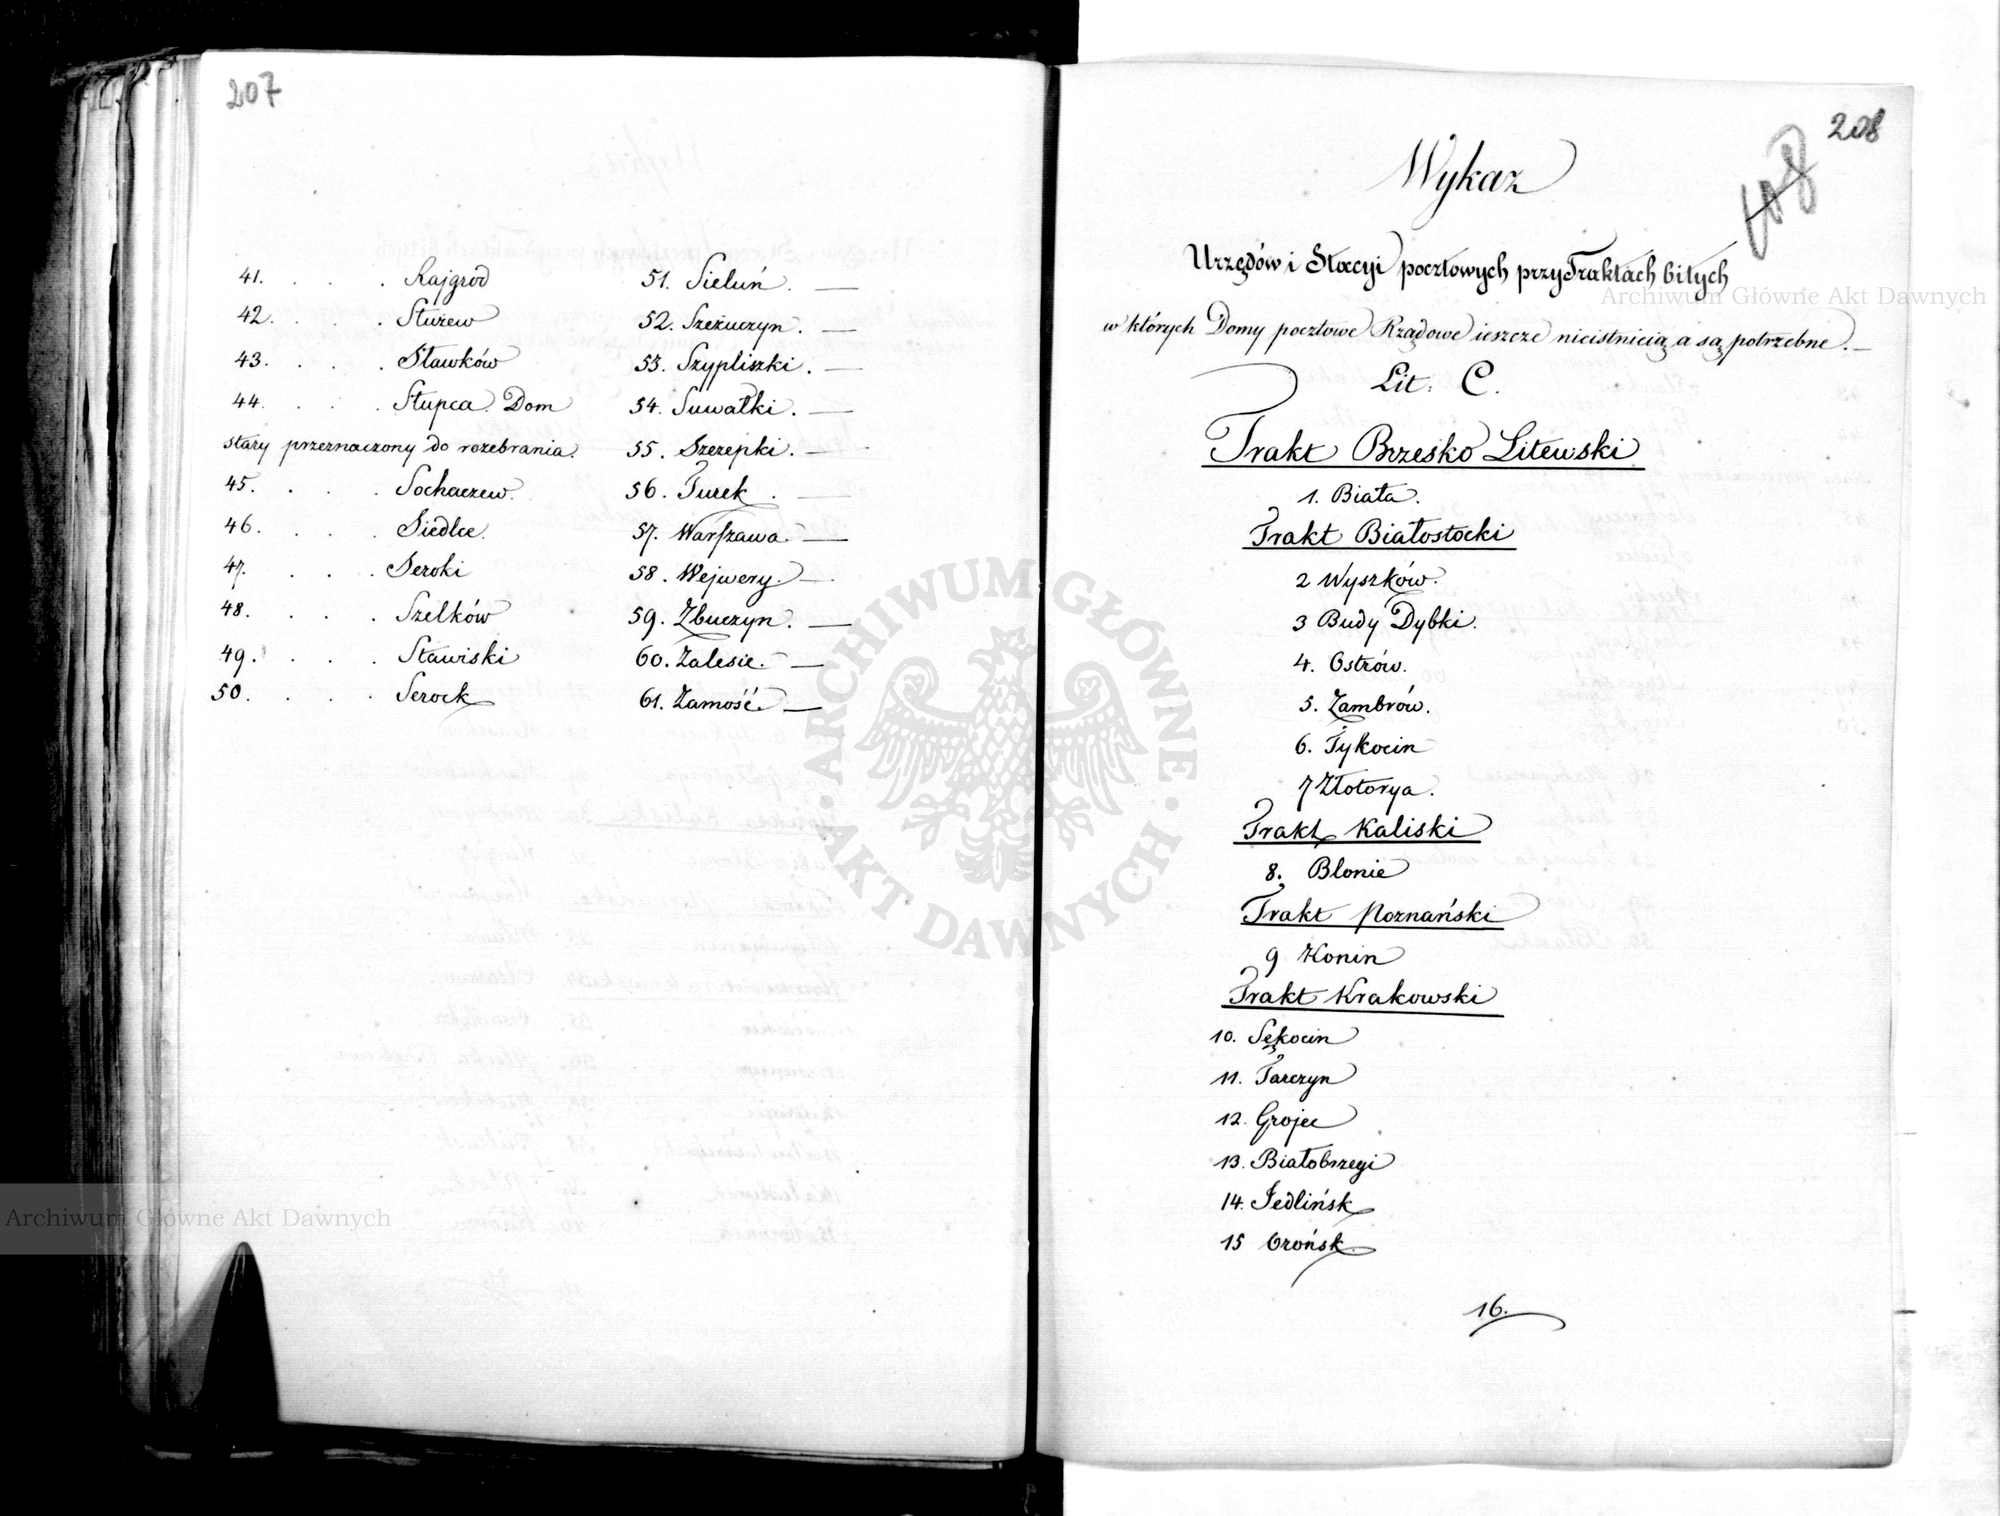 207
41. . . . Rajgrod
42. . . . Stużew
43. . . . Sławków
44. . . . Słupca. Dom
stary przeznaczony do rozebrania.
45. . . . Sochaczew.
46. . . . Siedlce.
47. . . . Seroki
48. . . . Szelków
49. . . . Stawiski
50. . . . Serock
51. Sieluń. —
52. Szczuczyn. —
53. Szypliszki. —
54. Suwałki. —
55. Szczepki. —
56. Turek. —
57. Warszawa. —
58. Wejwery. —
59. Zbuczyn. —
60. Zalesie. —
61. Zamość. —
208
Wykaz
Urzędów i Stacyi pocztowych przy Traktach bitych
w których Domy pocztowe Rządowe ieszcze nieistnieią a są potrzebne. —
Lit: C.
Trakt Brzesko Litewski
1. Biała.
Trakt Białostocki
2 Wyszków.
3 Budy Dybki.
4. Ostrów.
5. Zambrów.
6. Tykocin
7 Złotorya.
Trakt Kaliski
8. Blonie
Trakt Poznański
9 Konin
Trakt Krakowski
10. Sękocin
11. Tarczyn
12. Grojec
13. Białobrzegi
14. Jedlińsk
15 Orońsk.
16.
Archiwum Główne Akt Dawnych
ARCHIWUM GŁÓWNE · AKT DAWNYCH ·
Archiwum Główne Akt Dawnych